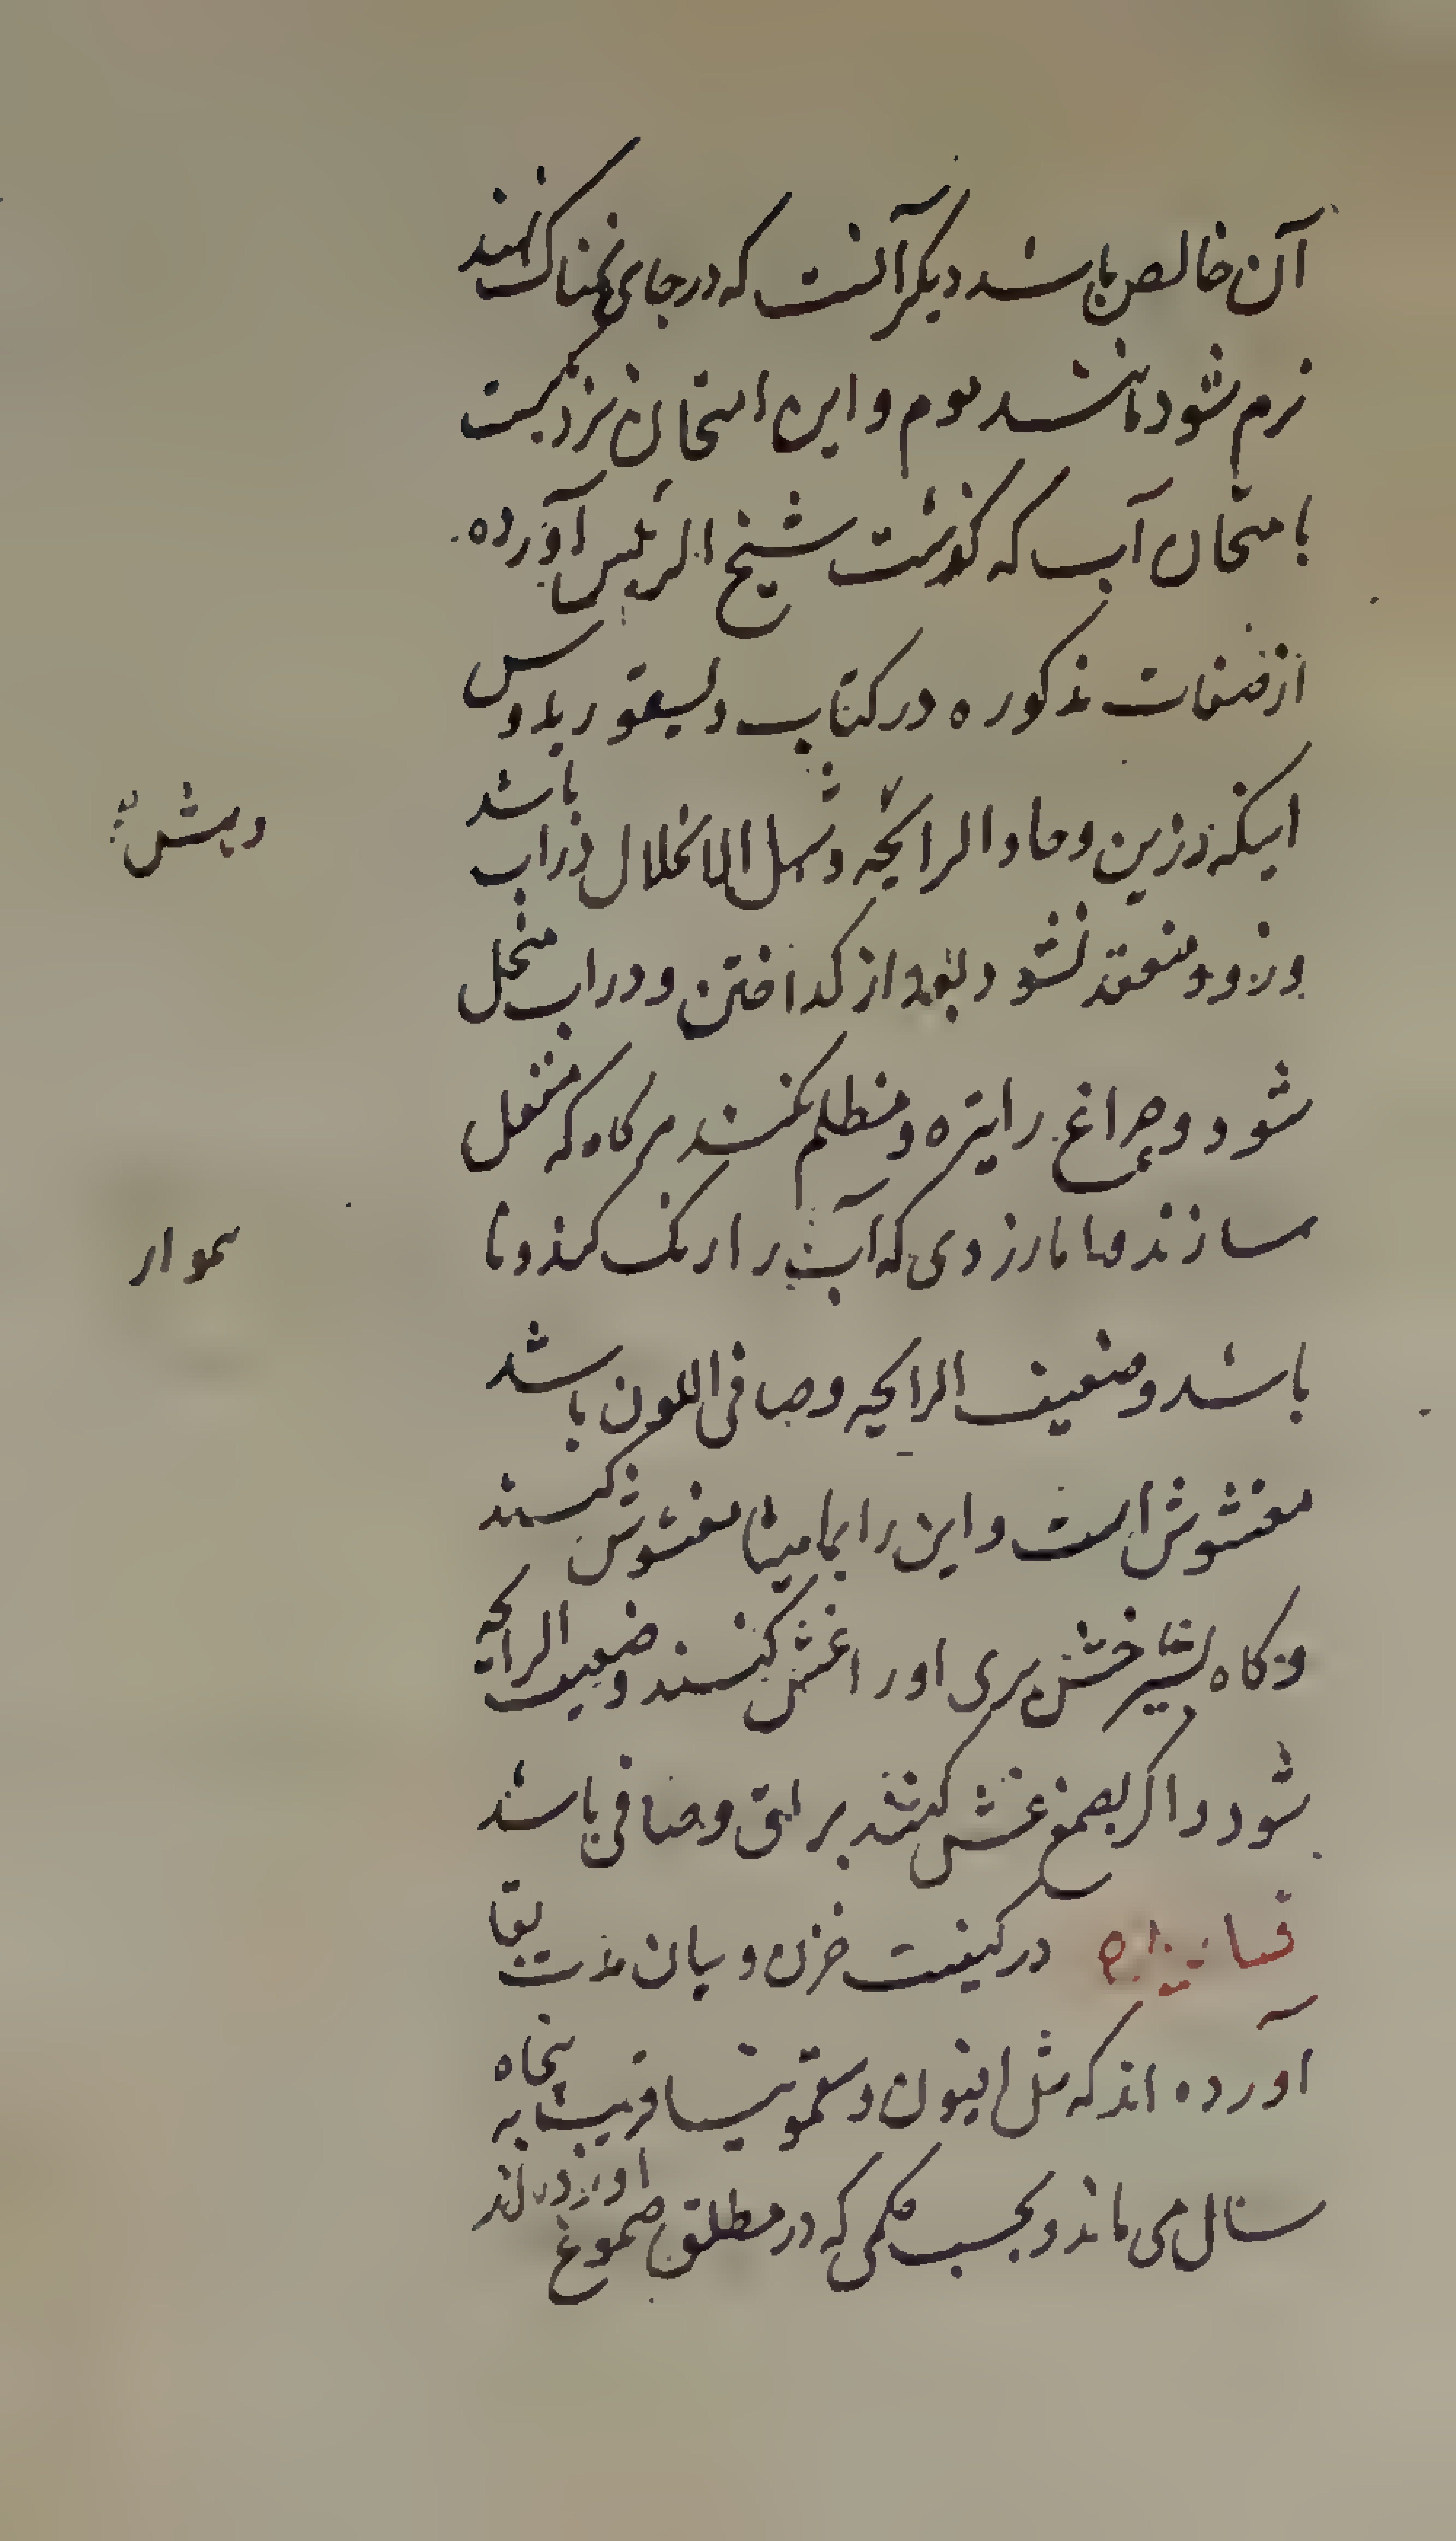 آن خالص باشد دیگر آنست که در جای نمناک نهند
نرم شود مانند موم و این امتحان نزدیکست
بامتحان آب که گذشت شیخ الرئیس آورده
از صفات مذکوره در کتاب دیسقوریدوس
اینکه رزین و حاد الرایحه و سهل الانحلال در آب باشد
و زود منعقد نشود بعد از گداختن و در آب منحل
شود و چراغ را تیره و مظلم نکند هرگاه که مشتعل
سازند و ما بارزدی که آب را رنگ کند و نا
باشد و ضعیف الرایحه و صافی اللون باشد
مغشوش است و این را بمامیثا مغشوش کنند
و گاه بشیر خس بری او را غش کنند و ضعیف الرایحه
شود و اگر بصمغ غش کنند براق و صافی باشد
در کیفیت خزن و بیان مدت بقا
آورده اند که مثل افیون و سقمونیا قریب به پنجاه
سال می ماند و بحسب حکمی که در مطلق صموغ آورده اند
هموار